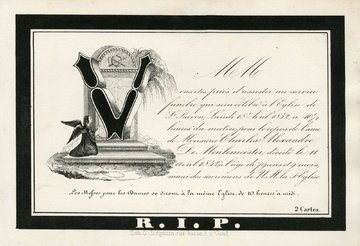 MM
V
ous êtes priés d'assister au service
funèbre qui sera célébré à l'Eglise de
St. Lundi 18 Avril 1842, à 10½
heures du matin, pour le repos de l'ame
de Monsieur Charles Alexandre
De décédé le 11
avril 1842, à l'âge de ans et mois,
muni des sacremens de N. M. la Ste Eglise
Les Messes pour les Dames se diront à la même Eglise, de 10 heures à midi.
2 Cartes.
R. I. P.
Lith. G. Jacqmain rue à Gand.